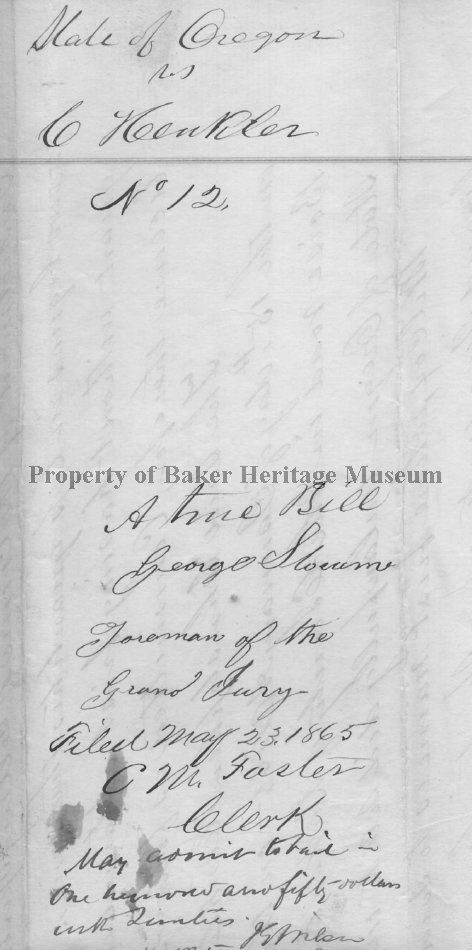 State of Oregon
vs
C Henkler
No 12.
Property of Baker Heritage Museum
A true Bill
George Slocum
Foreman of the
Grand Jury
Filed May 23, 1865
C M. Foster
Clerk
May admit to bail in
One hundred and fifty dollars
with Sureties.